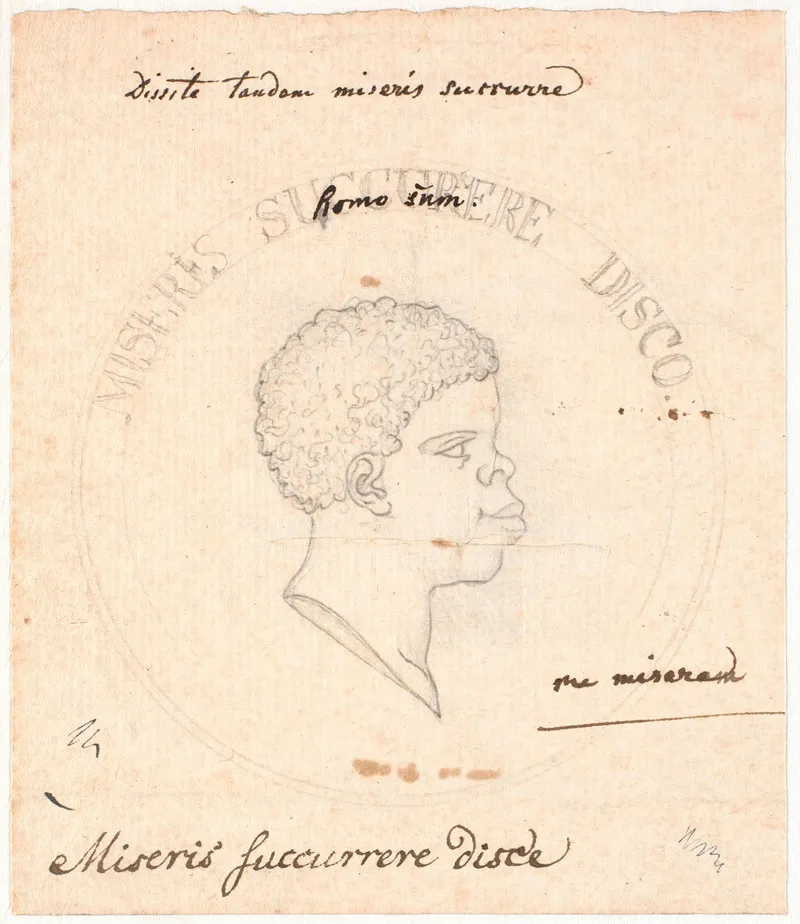 Dissite tandem miseris succurre
MISERIS SUCCURERE DISCO.
homo sum.
me miseram
Miseris succurrere disce